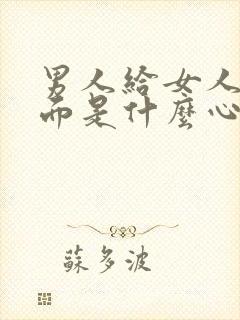 男人給女人
而是什麼心
蘇多波